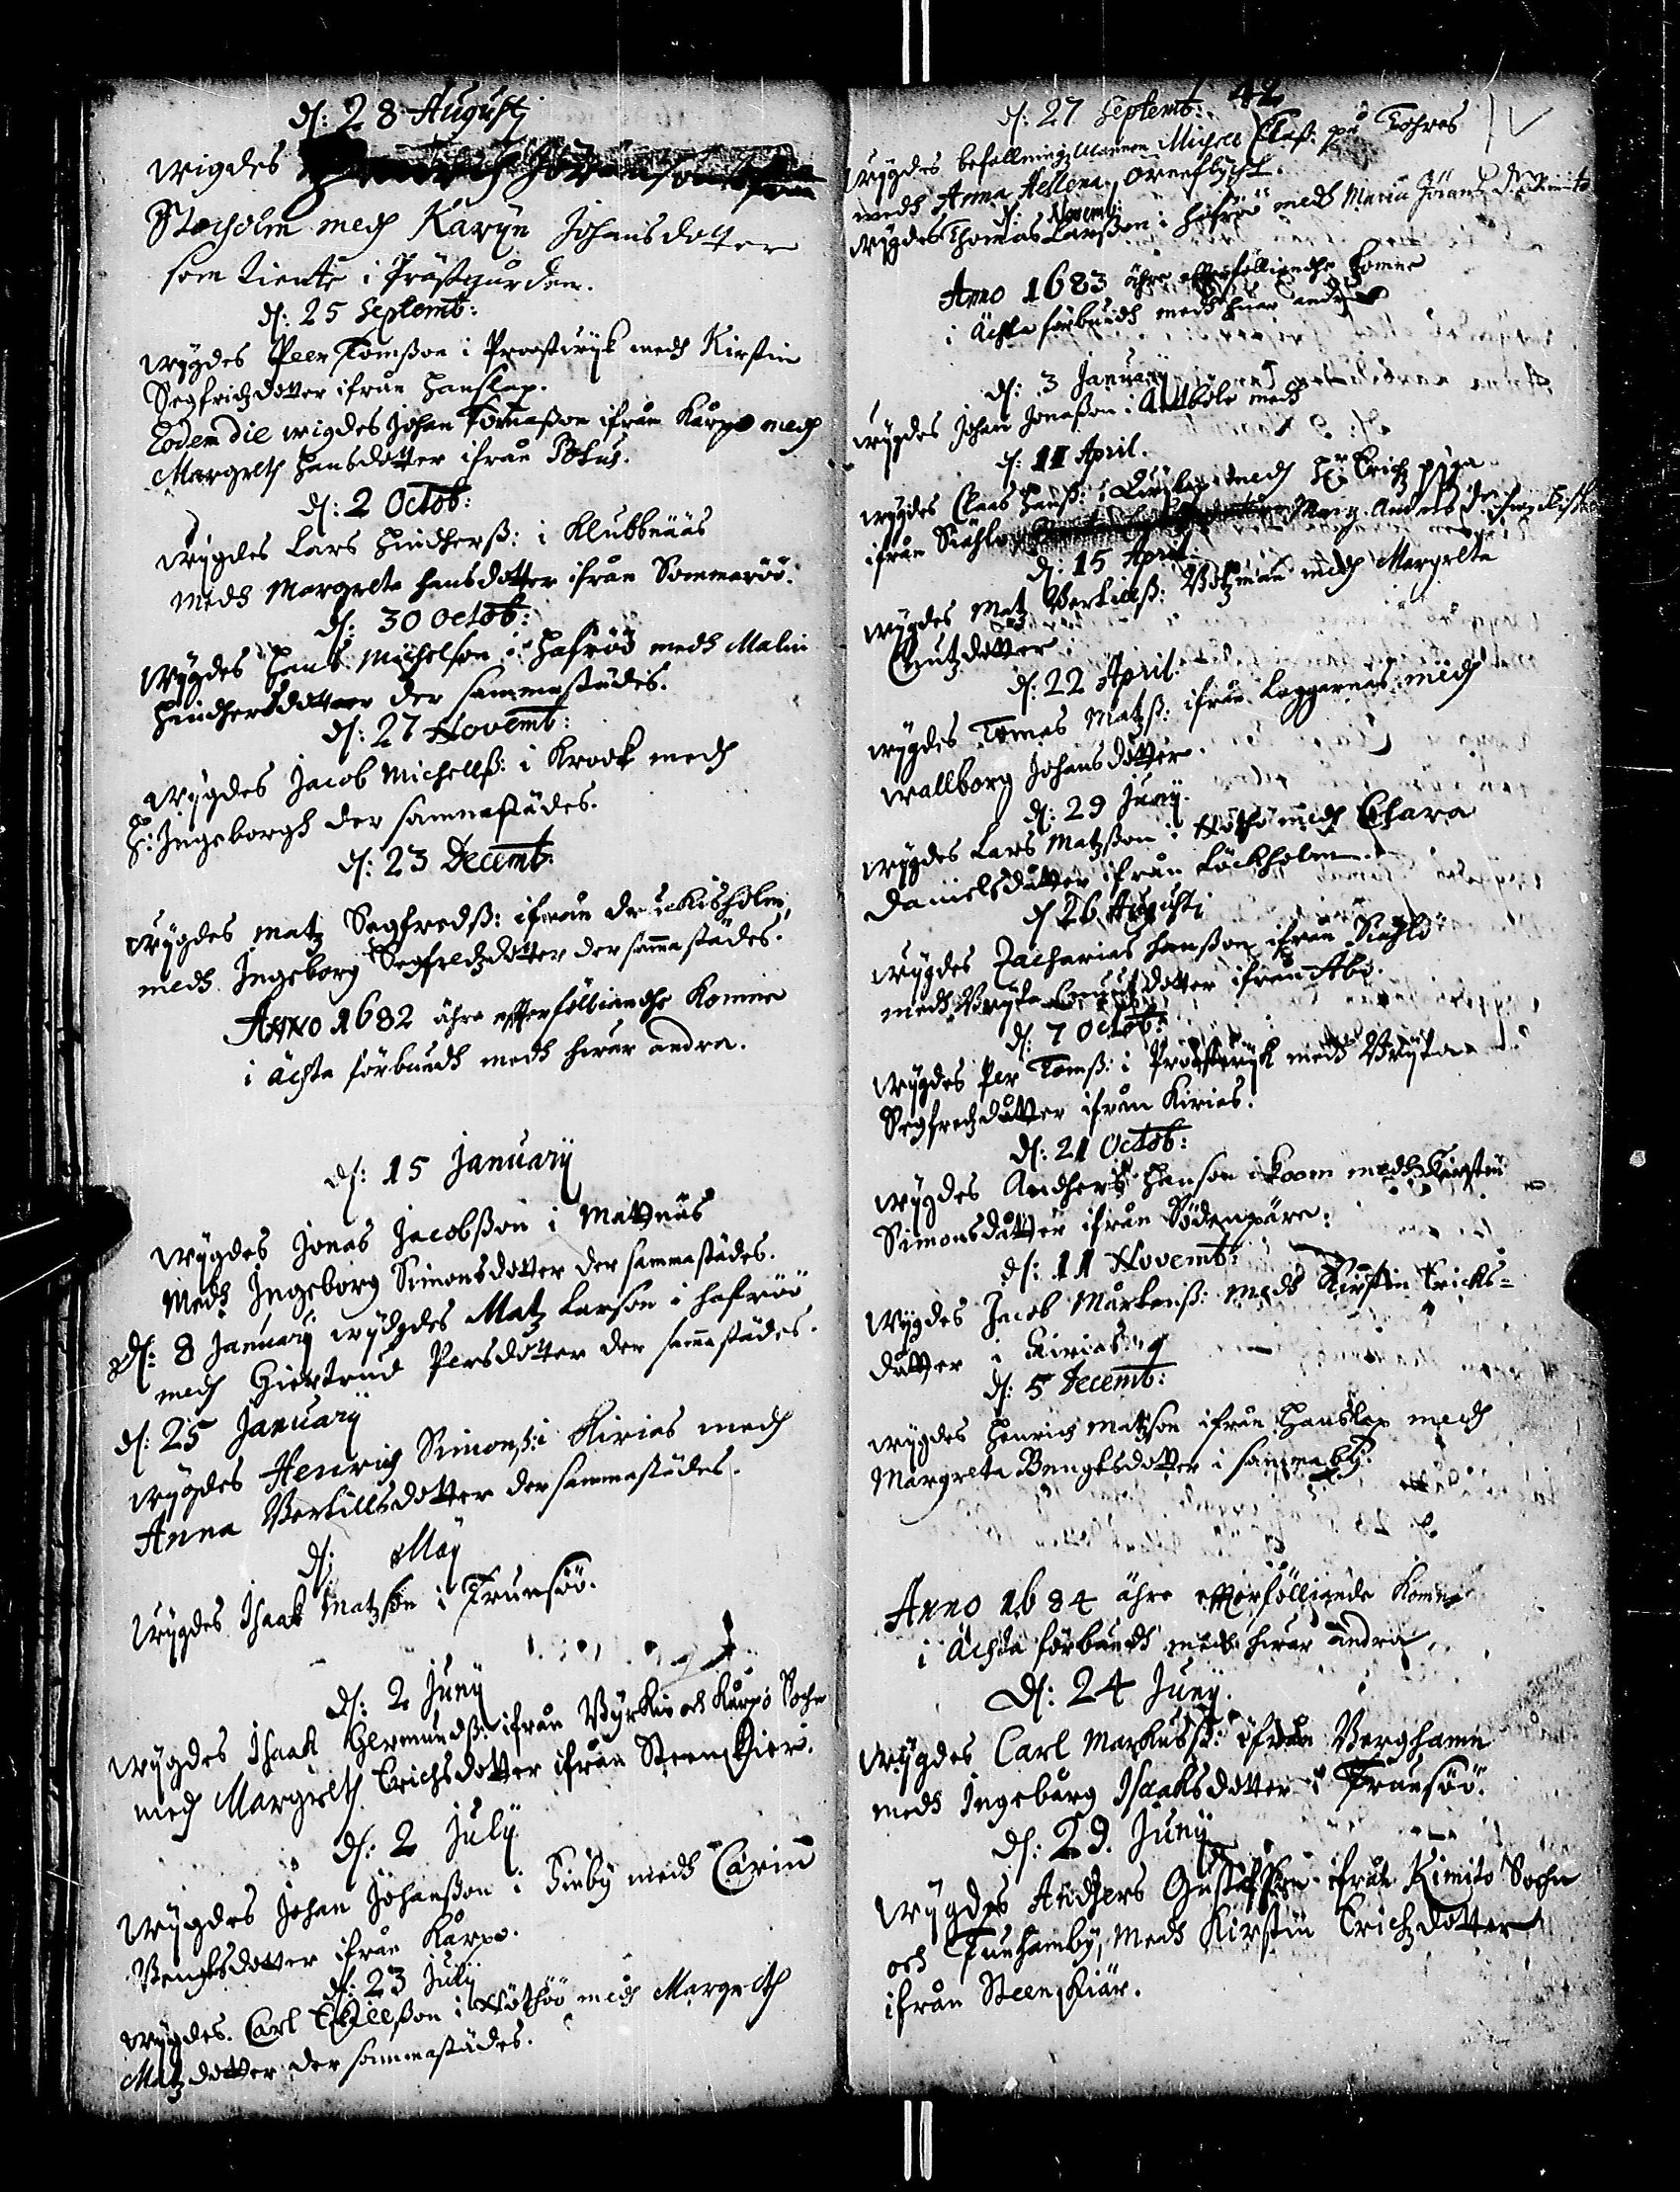 d: 28 Augustj
wigdes
Stocholm medh Karijn Johansdotter
som tiente i Prästgården.
d: 25 Septemb:
wijgdes Peer Tomsson i Proostwijk medh Kirstin
Segfridzdotter ifrån Hanslax.
Eodem die wigdes Johan Tomasson ifrån Kårpo medh
Margreth Hansdotter ifrån
d: 2 Octob:
wijgdes Lars Hindherss: i Klubbnääs
medh Margreta Hansdotter ifrån Sommaröö.
d: 30 Octob:
wijgdes Hans Michelson i Hafröö medh Malin
Hindhersdotter der sammastädes.
d: 27 Novemb:
wijgdes Jacob Michelss: i Krook medh
H: Ingeborgh der sammastädes.
d: 23 Decemb:
wijgdes Matz Segfredss: ifrån
medh Ingeborg Segfredzdotter der sammastädes.
Anno 1682 åhre effterfölliandhe Komne
i ächta förbundh medh hwar andra.
d: 15 Januarij
wijgdes Jonas Jacobsson i Mattnäs
medh Ingeborg Simonsdotter der sammastädes.
d: 8 Januarij wijdgdes Matz Larson i Hafröö
medh Giertrud Persdotter der sammastädes.
d: 25 Januarij
wijgdes Henrich Simonss: i Kirias medh
Anna Bertillsdotter der sammastädes.
d: Maij
wijgdes Isaak Matzson i Trunsöö.
d: 2 Junij
wijgdes Isaak Hermundss: ifrån och Kårpo Sochn
medh Margreth Erichsdotter ifrån Steenskier.
d: 2 Julij
wijgdes Johan Johansson i Finby medh Carin
Bengtsdotter ifrån Kårpo.
d: 23 Julij
wijgdes Carl Eskilsson i Nötöö medh Margreth
Matzdotter der sammastädes.
42
d: 27 Septemb:
wijgdes befallningzmannen Michel Clas: på Tohrs
medh Anna Hellena Orneflycht.
d: Novemb:
wijgdes Thomas Larsson i Hafröö medh Maria Jörans d: Kimito
Anno 1683 åhre effterfölliandhe Komne
i ächta förbundh medh hwar andra
d: 3 Januarij
wijgdes Johan Jonasson i Attbole medh
d: 11 April.
wijgdes Claas Hanss: i medh Hr: Erichz piga
ifrån Siählö
d: 15 April.
wijgdes Matz Bertilss: Båtzman medh Margreta
Knutzdotter
d: 22 April.
wijgdes Tomas Matzss: ifrån Laggarnäs medh
Wallborg Johansdotter.
d: 29 Junij.
wijgdes Lars Matzsson i Nötö medh Chara
Danielsdotter ifrån Löckholm.
d 26 Augustj
wijgdes Zacharias Hansson ifrån Siählö
medh Brijta Knutzdotter ifrån Åbo.
d: 7 Octob:
wijgdes Per Tomss: i Prostwijk medh Brijta
Segfredzdotter ifrån Kirias.
d: 21 Octob:
wijgdes Andhers Hanson i Koom medh Kirstin
Simonsdotter ifrån
d: 11 Novemb:
wijgdes Jacob Markuss: medh Kirstin Ericks=
dotter i Kirias
d: 5 Decemb:
wijgdes Henrich Matzson ifrån Hanslax medh
Margreta Bengtsdotter i samma by.
Anno 1684 åhre effterfölliande Komne
i ächta förbundh medh hwar andra.
d: 24 Junij.
wijgdes Carl Markuss: ifrån Berghamn
medh Ingeborg Isaaksdotter i Trunsöö.
d: 29. Junij
wijgdes Andhers Gustafson ifrån Kimito Sochn
och Tunhamby, medh Kirstin Erichzdotter
ifrån Steenskiär.